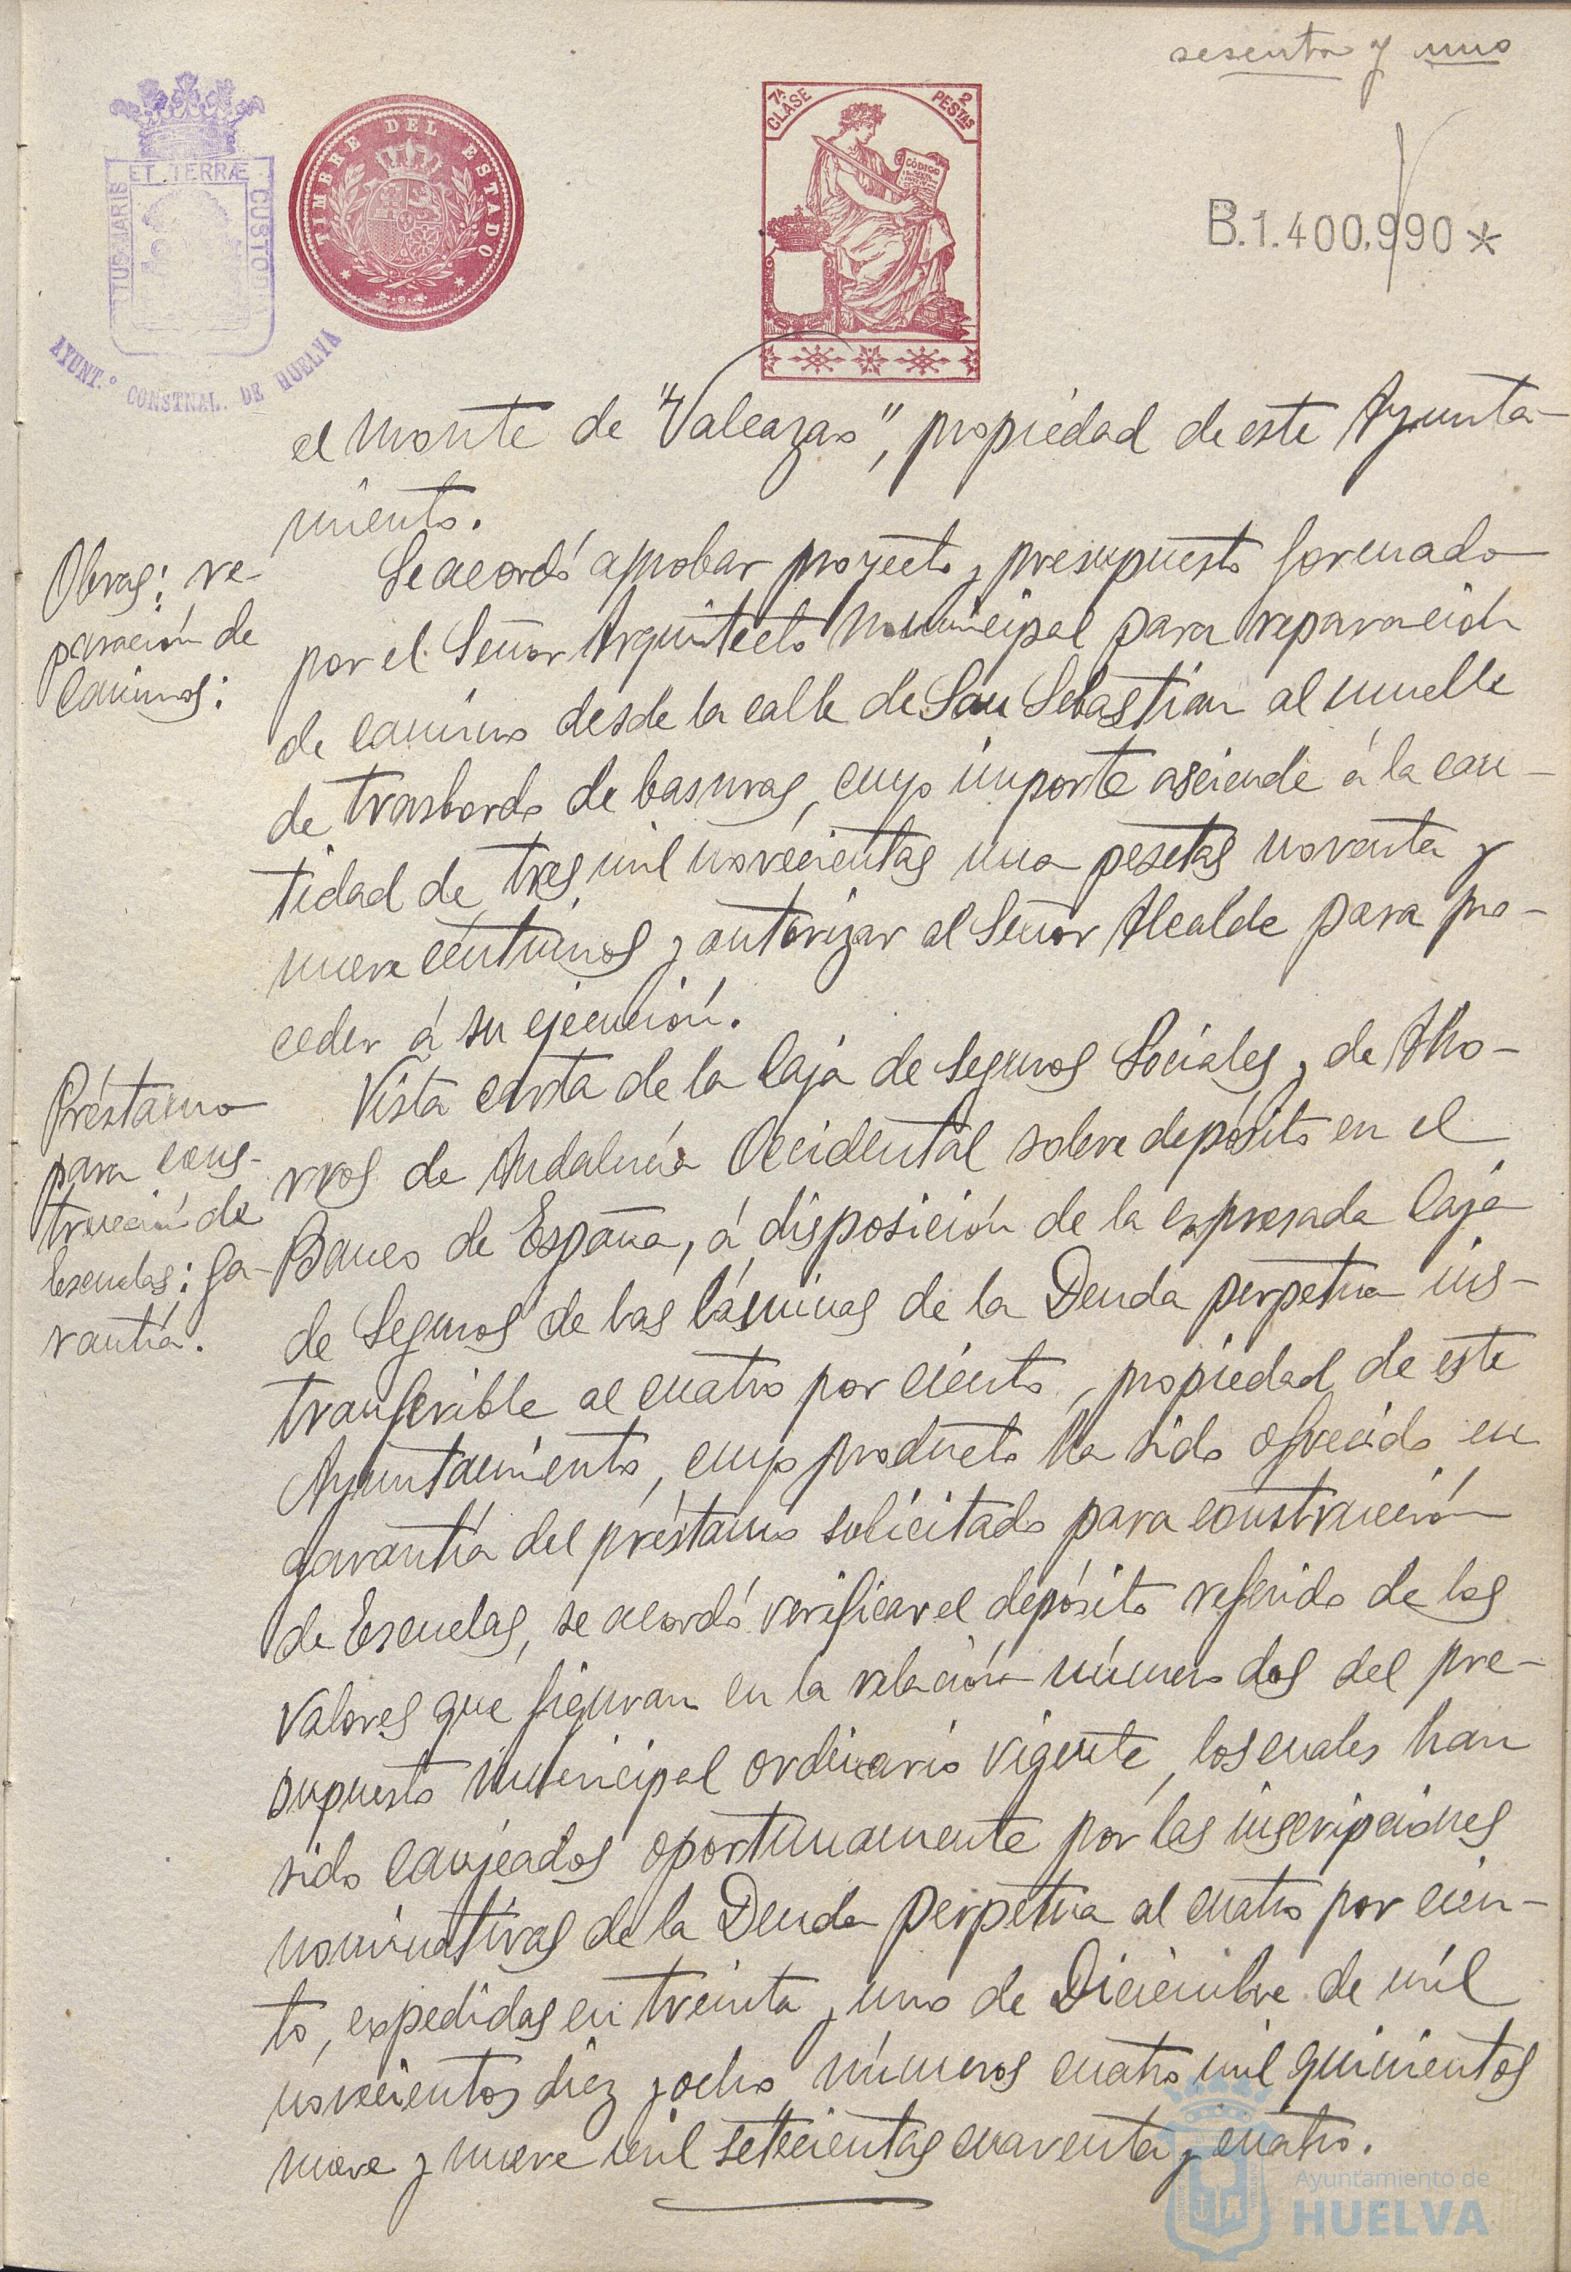 sesenta y uno
ET TERRÆ
CUSTO
AYUNT.º CONSTNAL. DE HUELVA
TIMBRE DEL ESTADO
7ª CLASE
2 PESTAS
CÓDIGO
B.1.400.990 *
el monte de "Valcazao", propiedad de este Ayunta-
miento.
Obras: re-
paración de
caminos:
Se acordó aprobar proyecto y presupuesto formado
por el Señor Arquitecto Municipal para reparación
de camino desde la calle de San Sebastián al muelle
de trasbordo de basuras, cuyo importe asciende á la can-
tidad de tres mil novecientas una pesetas noventa y
nueve céntimos y autorizar al Señor Alcalde para pro-
ceder á su ejecución.
Préstamo
para cons-
trucción de
Escuelas: ga-
rantía.
Vista carta de la Caja de Seguros Sociales y de Aho-
rros de Andalucía Occidental sobre depósito en el
Banco de España, á disposición de la expresada Caja
de Seguros de las láminas de la Deuda perpetua ins-
tranferible al cuatro por ciento, propiedad de este
Ayuntamiento, cuyo producto ha sido ofrecido en
garantía del préstamo solicitado para construcción
de Escuelas, se acordó verificar el depósito referido de los
valores que figuran en la relación número dos del pre-
supuesto municipal ordinario vigente, los cuales han
sido canjeados oportunamente por las inscripciones
nominativas de la Deuda perpetua al cuatro por cien-
to, expedidas en treinta y uno de Diciembre de mil
novecientos diez y ocho números cuatro mil quinientos
nueve y nueve mil setecientas cuarenta y cuatro.
Ayuntamiento de
HUELVA